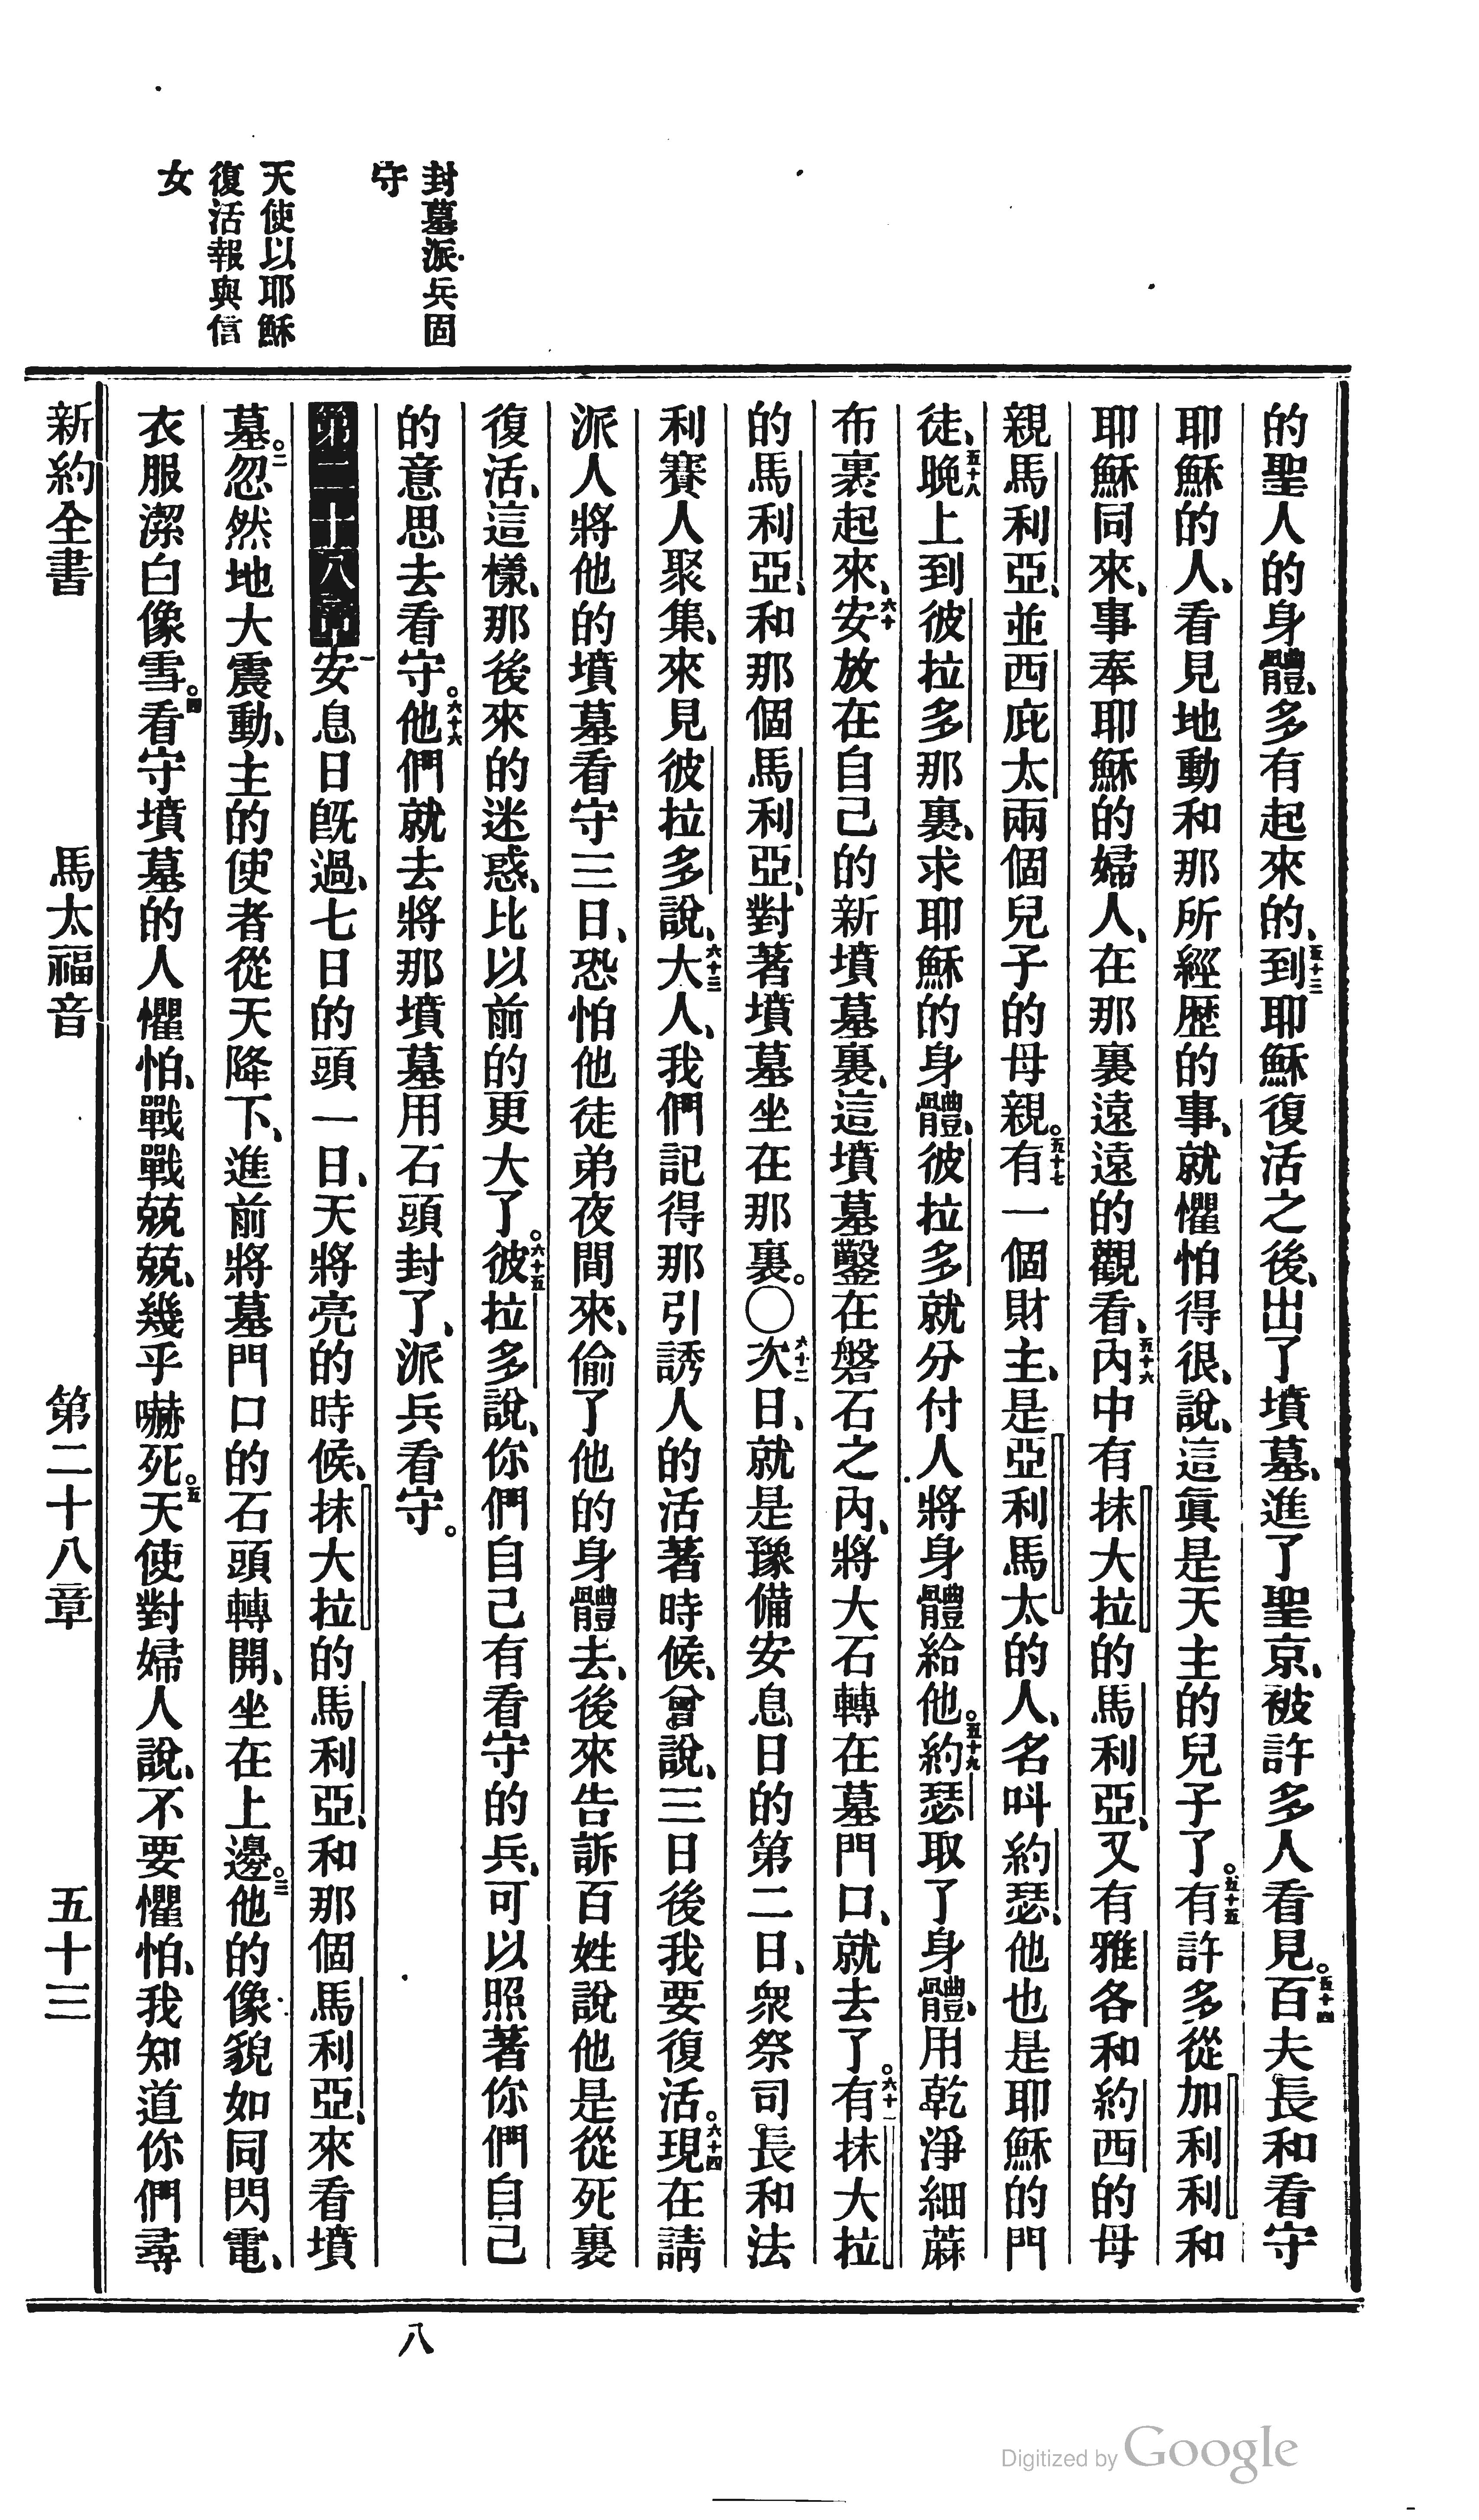 封墓派兵固
守
天使以耶穌
復活報與信
女
的聖人的身體、多有起來的、五十三到耶穌復活之後、出了墳墓、進了聖京、被許多人看見。五十四百夫長和看守
耶穌的人、看見地動和那所經歷的事、就懼怕得很、說、這眞是天主的兒子了。五十五有許多從加利利和
耶穌同來、事奉耶穌的婦人、在那裏遠遠的觀看、五十六內中有抹大拉的馬利亞、又有雅各和約西的母
親馬利亞、並西庇太兩個兒子的母親。五十七有一個財主、是亞利馬太的人、名呌約瑟、他也是耶穌的門
徒、五十八晚上到彼拉多那裏、求耶穌的身體、彼拉多就分付人將身體給他。五十九約瑟取了身體、用乾淨細蔴
布裹起來、六十安放在自己的新墳墓裏、這墳墓鑿在磐石之內、將大石轉在墓門口、就去了。六十一有抹大拉
的馬利亞、和那個馬利亞、對著墳墓坐在那裏。〇六十二次日、就是豫備安息日的第二日、衆祭司長和法
利賽人聚集、來見彼拉多說、六十三大人、我們記得那引誘人的活著時候、曾說、三日後我要復活。六十四現在請
派人將他的墳墓看守三日、恐怕他徒弟夜間來、偷了他的身體去、後來告訴百姓說他是從死裏
復活、這樣、那後來的迷惑、比以前的更大了。六十五彼拉多說、你們自己有看守的兵、可以照著你們自己
的意思去看守。六十六他們就去將那墳墓用石頭封了、派兵看守。
第二十八章一安息日旣過、七日的頭一日、天將亮的時候、抹大拉的馬利亞、和那個馬利亞、來看墳
墓。二忽然地大震動、主的使者從天降下、進前將墓門口的石頭轉開、坐在上邊。三他的像貌如同閃電、
衣服潔白像雪。四看守墳墓的人懼怕、戰戰兢兢、幾乎嚇死。五天使對婦人說、不要懼怕、我知道你們尋
新約全書 馬太福音 第二十八章 五十三
八
Digitized by Google